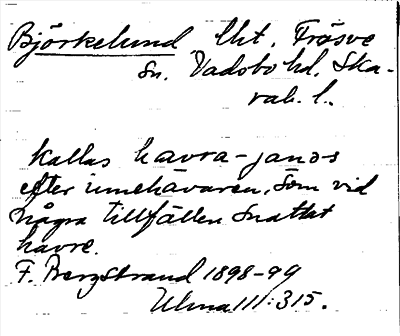 Björkelund lht. Fräsve
sn. Vadsbo hd. Ska-
rab. l.
kallas havra-janos
efter innehavaren, som vid
några tillfällen snattat
havre.
F. Bergstrand 1898-99
Ulma 111:315.